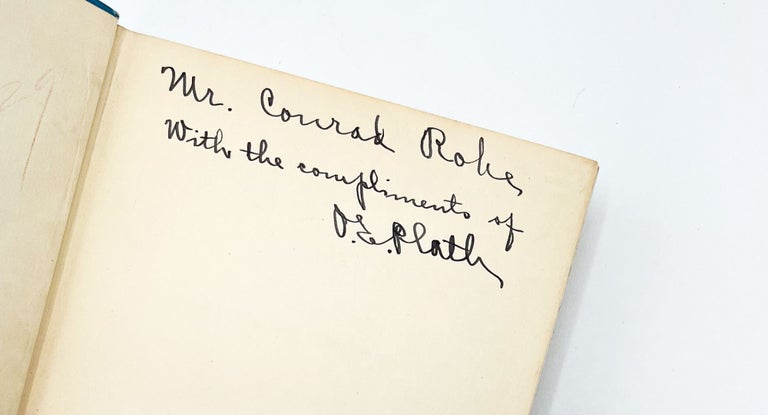 Mr. Conrad Robe,
With the compliments of
O.E. Plath